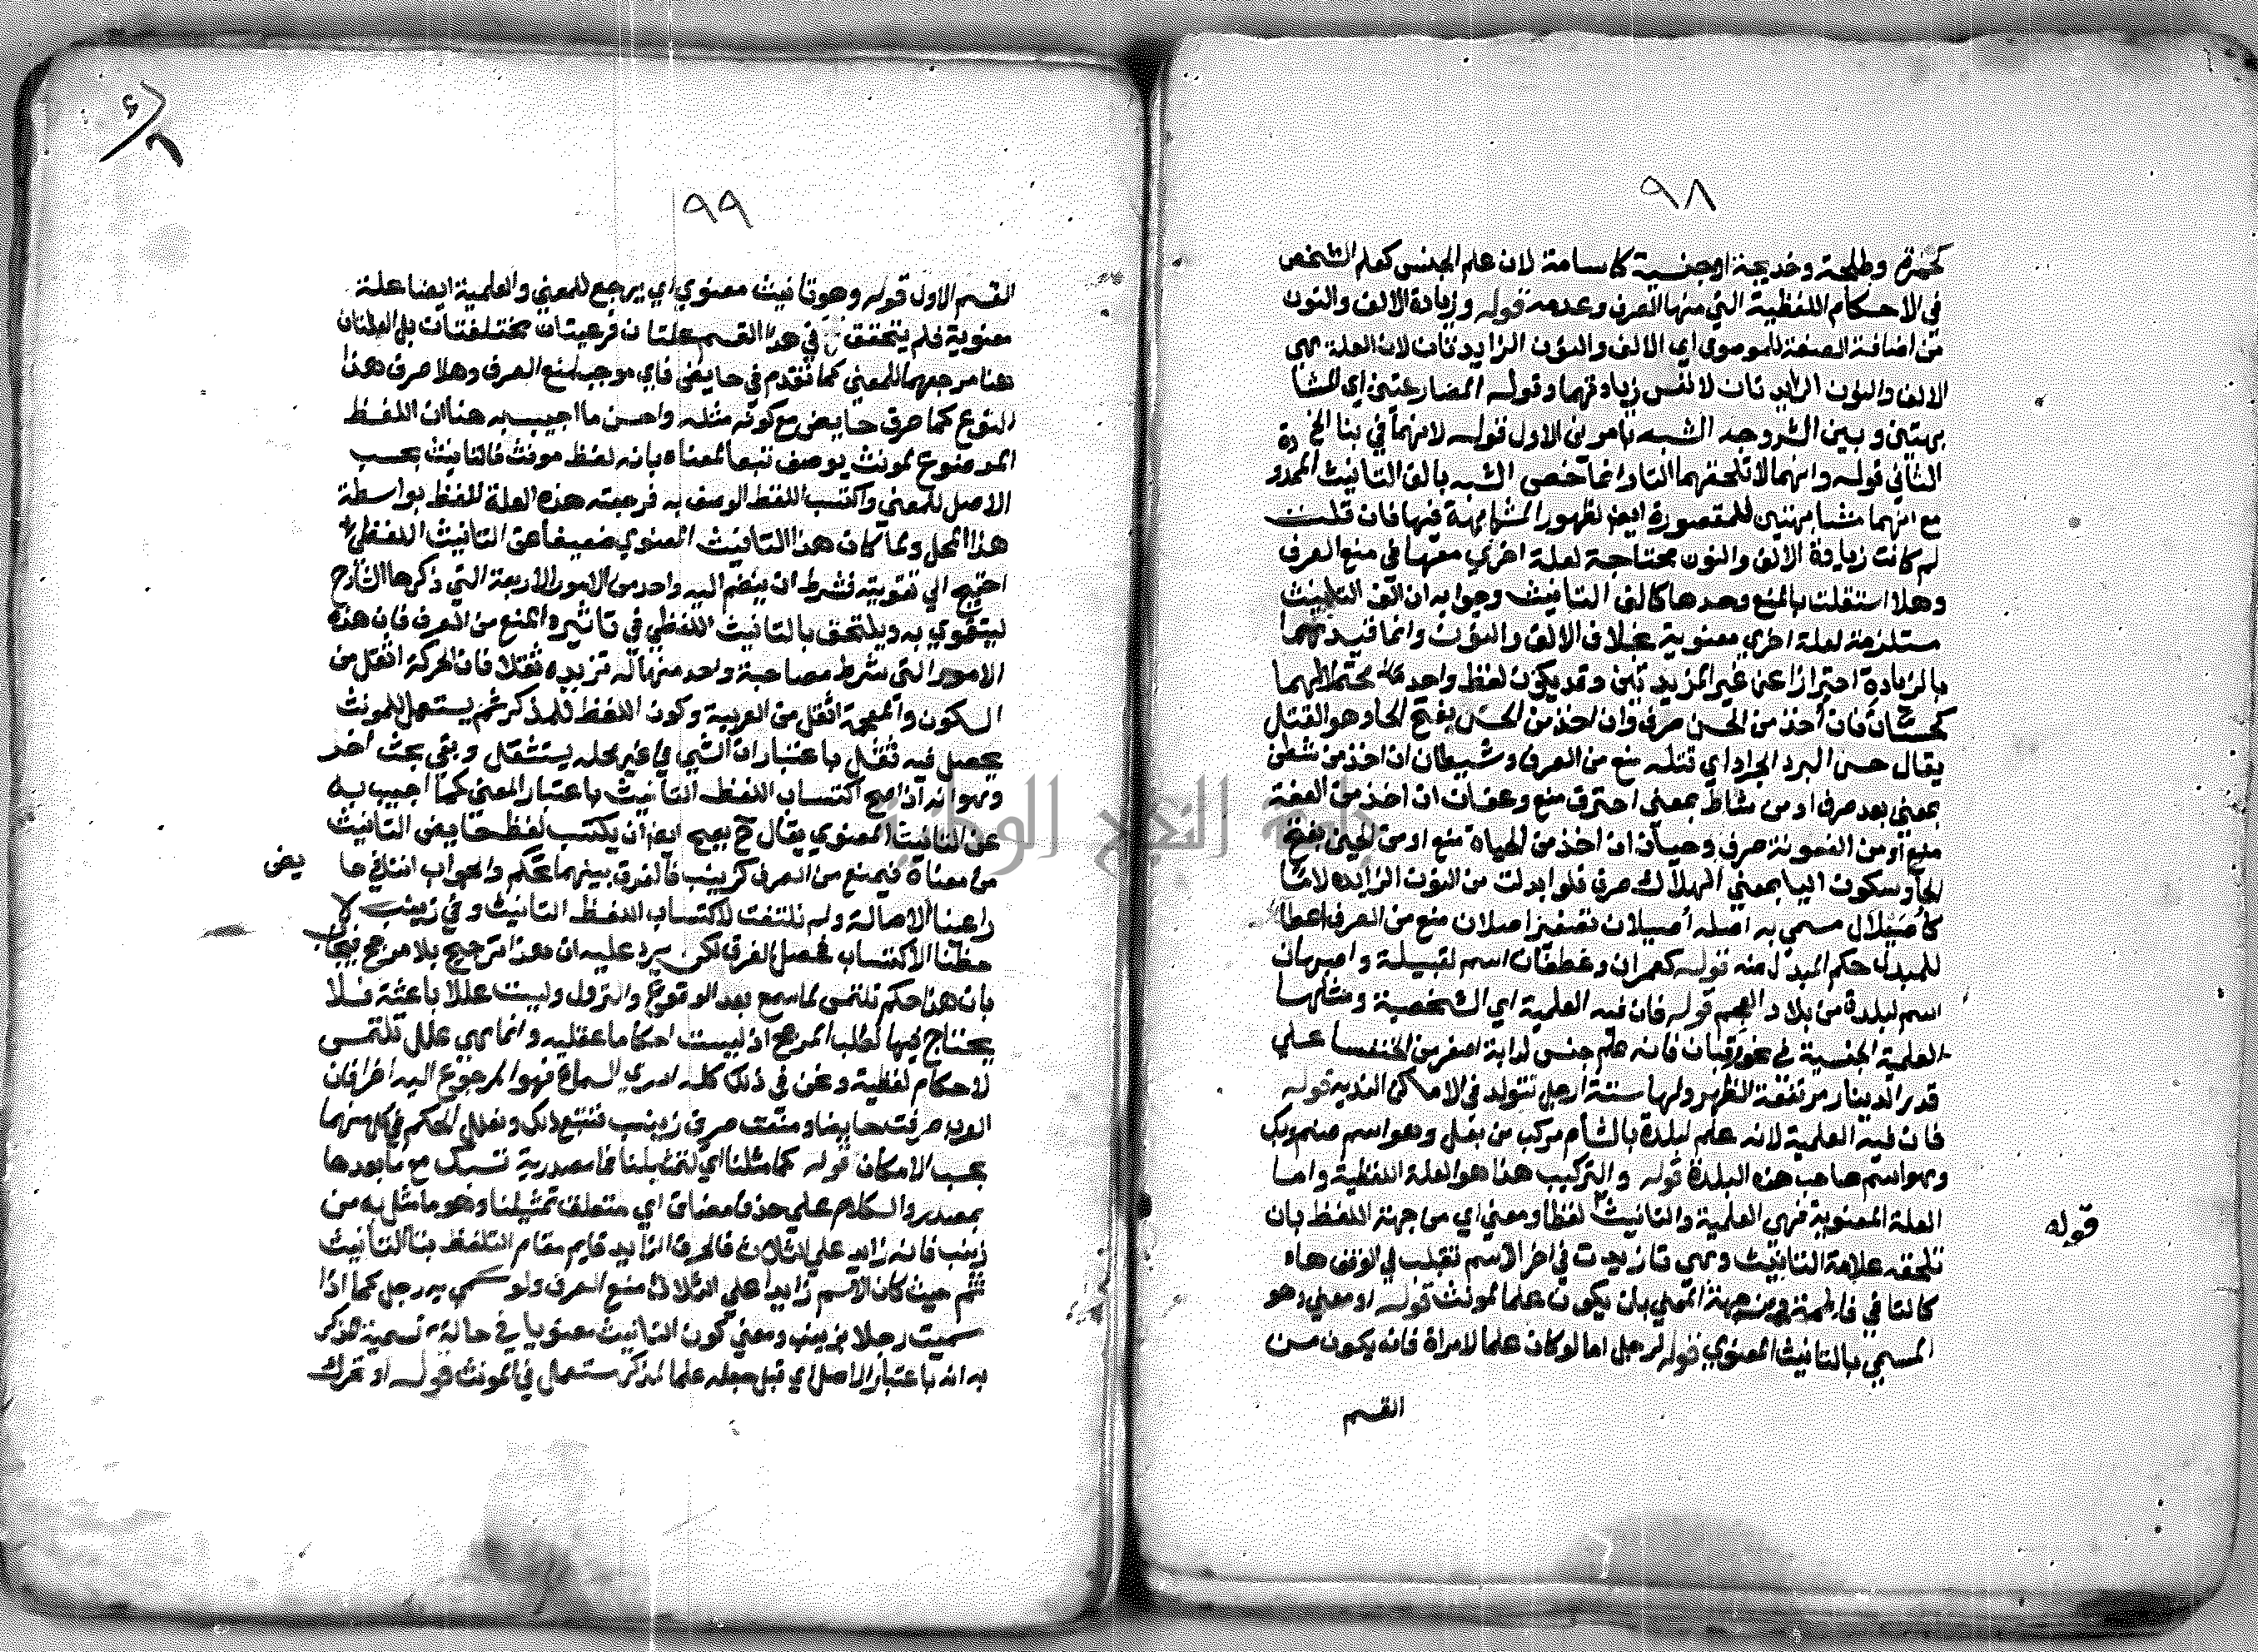 ٩٨
كحمزة وطلحة وخديجة او جنسية كاسامة لان علم الجنس كعلم الشخص
في الاحكام اللفظية التي منها الصرف وعدمه قوله وزيادة الالف والنون
من اضافة الصفة للموصوف اي الالف والنون الزايدتان لان العلة هي
الالف والنون الزايدتان لا نفس زيادتهما وقوله المضارعتين اي المشا
بهتين وبين الش وجه الشبه بامرين الاول قوله لانهما في بنا الخ
الثاني قوله وانهما لا تلحقهما التا وانما خص الشبه بالف التانيث الممدودة
مع انهما مشابهتين للمقصورة ايض لظهور المشابهة فيها فان قلت
لم كانت زيادة الالف والنون محتاجة لعلة اخري معها في منع الصرف
وهلا استقلت بالمنع وحدها كالف التانيث وجوابه ان الف التانيث
مستلزمة لعلة اخري معنوية بخلاف الالف والنون وانما قيدهما
بالزيادة احترازا عن غير المزيدتين وقد يكون لفظ واحد محتملا لهما
كحسان فان اخذ من الحسن صرف وان اخذ من الحس بفتح الحا وهو القتل
يقال حس البرد الجراد اي قتله منع من الصرف وشيطان ان اخذ من شطن
بمعني بعد صرف او من شاط بمعني احترق منع وعفان ان اخذ من العفة
منع او من العفونة صرف وحيان ان اخذ من الحياة منع او من الحين بفتح
الحا وسكون اليا بمعني الهلاك صرف فلو ابدلت من النون الزايدة لاما
كاصيلال مسمي به اصله اصيلان تصغير اصلان منع من الصرف اعطا
للمبدل حكم المبدل منه قوله كعمران وغطفان اسم لقبيلة واصبهان
اسم لبلدة من بلاد العجم قوله فان فيه العلمية اي الشخصية ومثلها
العلمية الجنسية في نحو قبان فانه علم جنس لدابة اصغر من الخنفسا علي
قدر الدينار مرتفعة الظهر ولها ستة ارجل تتولد في الاماكن الندية قوله
فان فيه العلمية لانه علم لبلدة بالشام مركب من بعل وهو اسم صنم وبك
وهو اسم صاحب هذه البلدة قوله والتركيب هذا هو العلة اللفظية واما
العلة المعنوية فهي العلمية والتانيث لفظا ومعني اي من جهة اللفظ بان
تلحقه علامة التانيث وهي تا زيدت في اخر الاسم تقلب في الوقف هاء
كالتا في فاطمة ومن جهة المعني بان يكون علما لمونث قوله او معني وهو
المسمي بالتانيث المعنوي قوله لرجل اما لو كان علما لامراة فانه يكون من
قوله
القسم
٩٩
القسم الاول قوله وهو تانيث معنوي اي يرجع للمعني والعلمية ايضا علة
معنوية فلم يتحقق في هذا القسم علتان فرعيتان مختلفتان بل العلتان
هنا مرجعهما للمعني كما تقدم في حايض فاي موجب لمنع الصرف وهلا صرف هذا
النوع كما صرف حايض مع كونه مثله واحسن ما اجيب به هنا ان اللفظ
الموضوع لمونث يوصف تبعا لمعناه بانه لفظ مونث فالتانيث بحسب
الاصل للمعني واكتسب اللفظ الوصف به فرجعت هذه العلة للفظ بواسطة
هذا المحل ولما كان هذا التانيث المعنوي ضعيفا عن التانيث اللفظي
احتيج الي تقويته فشرط ان ينضم اليه واحد من الامور الاربعة التي ذكرها الشارح
ليتقوي به ويلتحق بالتانيث اللفظي في تاثيره المنع من الصرف فان هذه
الامور التي شرط مصاحبة واحد منها له تزيده ثقلا فان الحركة اثقل من
السكون والعجمة اثقل من العربية وكون اللفظ للمذكر ثم يستعمل للمونث
يحصل فيه ثقل باعتبار ان الشي في غير محله يستثقل وبقي بحث اخر
وهو انه اذا صح اكتساب اللفظ التانيث باعتبار المعني كما اجيب به
عن التانيث المعنوي يقال ح يصح ايض ان يكتسب لفظ حايض التانيث
من معناه فيمنع من الصرف كزينب فالفرق بينهما تحكم والجواب اننا في حايض
راعينا الاصالة ولم نلتفت لاكتساب اللفظ التانيث وفي زينب
حظنا الاكتساب فحصل الفرق لكن يرد عليه ان هذا ترجيح بلا مرجح فيجاب
بان هذا حكم تلتمس لما سمع بعد الوقوع والنزول وليست عللا باعثة فلا
يحتاج فيها لطلب المرجح اذ ليست احكاما عقلية وانما هي علل تلتمس
لاحكام لفظية ونحن في ذلك كله اسري السماع فهو المرجوع اليه اخرا فان
العرب صرفت حايضا ومنعت صرف زينب فنتبع ذلك ونعلل الحكم في كل منهما
بحسب الامكان قوله كما مثلنا اي لتمثيلنا فما مصدرية تسبك مع ما بعدها
بمصدر والكلام علي حذف مضاف اي متعلق تمثيلنا وهو ما مثل به من
زينب فانه زايد علي الثلاث فالحرف الزايد قايم مقام التلفظ بتا التانيث
ثم حيث كان الاسم زايدا علي الثلاثي منع الصرف ولو سمي به رجل كما اذا
سميت رجلا بزينب ومعني كون التانيث معنويا في حالة تسمية مذكر
به انه باعتبار الاصل اي قبل جعله علما لمذكر ستعمل في المونث قوله او تحرك